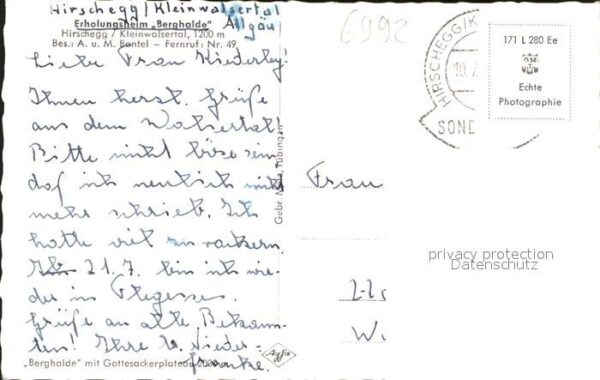 Hirschegg / Kleinwalsertal
Erholungsheim „Berghalde" Allgäu
Hirschegg / Kleinwalsertal, 1200 m
Bes.: A. u. M. Bantel - Fernruf: Nr. 49
6992
HIRSCHEGG/K
10.7
SOND
171 L 280 Ee
Echte
Photographie
Liebe Frau
Ihnen herzl. Grüße
aus dem Walsertal!
Bitte nicht böse sein
daß ich neulich nicht
mehr schrieb. Ich
hatte viel zu rackern.
Ab 21.7. bin ich wie-
der in
Grüße an alle Bekann-
ten! Ihre
Gebr. Metz, Tübingen
Frau
W
privacy protection
Datenschutz
Agfa
„Berghalde" mit Gottesackerplateau